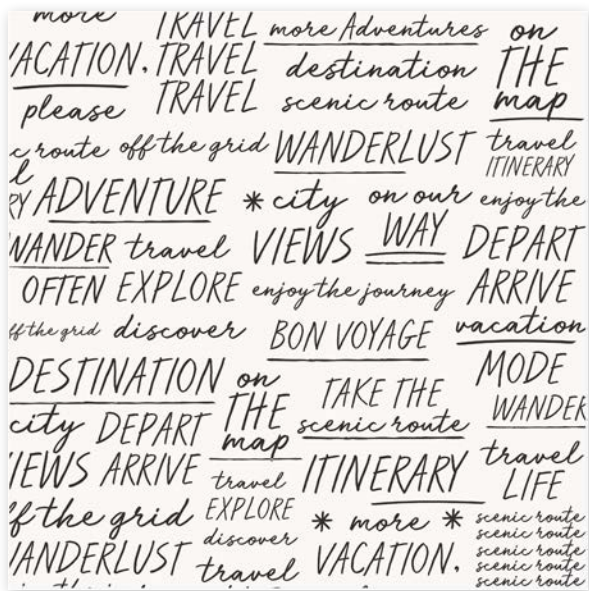 more TRAVEL more Adventures on
VACATION. TRAVEL destination THE
please TRAVEL scenic route map
c route off the grid WANDERLUST travel
ITINERARY
RY ADVENTURE * city on our enjoy the
WANDER travel VIEWS WAY DEPART
OFTEN EXPLORE enjoy the journey ARRIVE
ff the grid discover BON VOYAGE vacation
DESTINATION on TAKE THE MODE
city DEPART THE scenic route WANDER
VIEWS ARRIVE map ITINERARY travel
travel LIFE
f the grid EXPLORE * more * scenic route
discover scenic route
WANDERLUST travel VACATION. scenic route
scenic route
scenic route